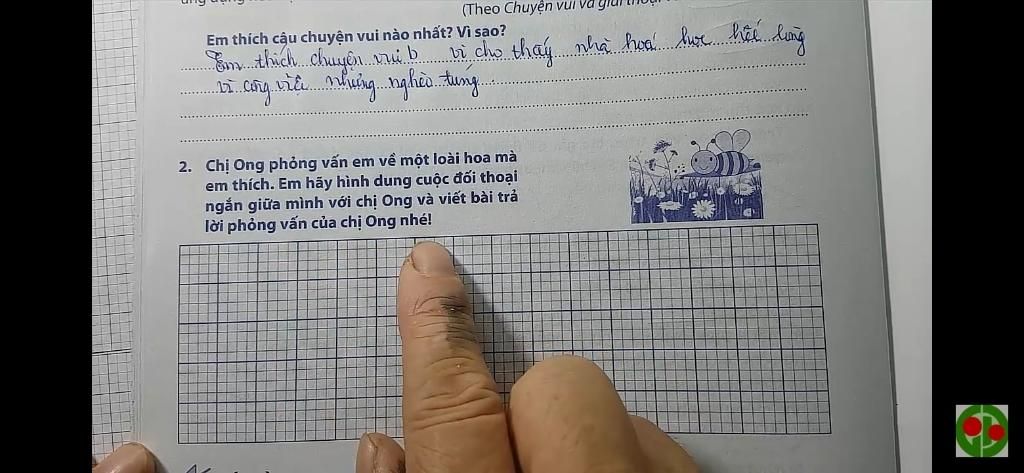 (Theo Chuyện vui và giải thoại
Em thích câu chuyện vui nào nhất? Vì sao?
Em thích chuyện vui b vì cho thấy nhà hoá học hết lòng
vì công việc nhưng nghèo túng
2. Chị Ong phỏng vấn em về một loài hoa mà
em thích. Em hãy hình dung cuộc đối thoại
ngắn giữa mình với chị Ong và viết bài trả
lời phỏng vấn của chị Ong nhé!